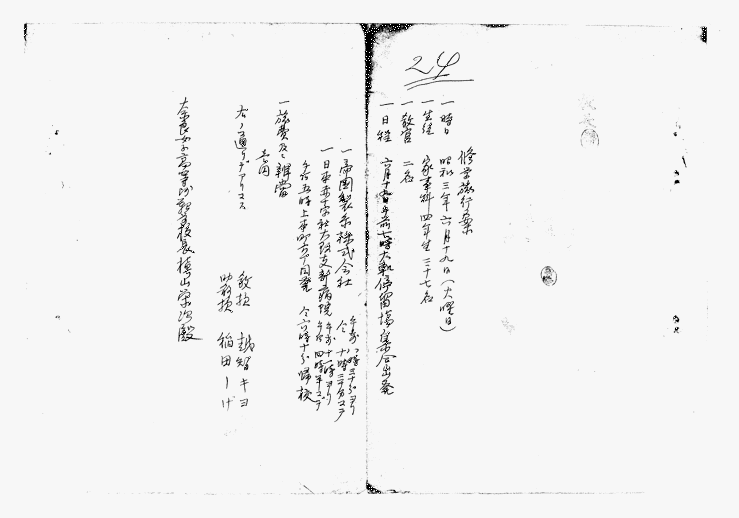 24
修学旅行案
一 時日 昭和三年六月十九日(火曜日)
一 生徒 家事科四年生 三十七名
一 教官 二名
一 日程 六月十九日午前七時大軌停留場集合出発
一 帝国製糸株式会社 午前八時三十分ヨリ 仝 十時三十分マデ
一 日本赤十字社大阪支部病院 午前十一時ヨリ 午后四時半マデ
午后五時上本町六丁目発 仝六時十分帰校
一 旅費及ビ辨当
右ノ通リデアリマス
教授 越智キヨ
助教授 稲田シげ
奈良女子高等師範学校長槇山栄次殿